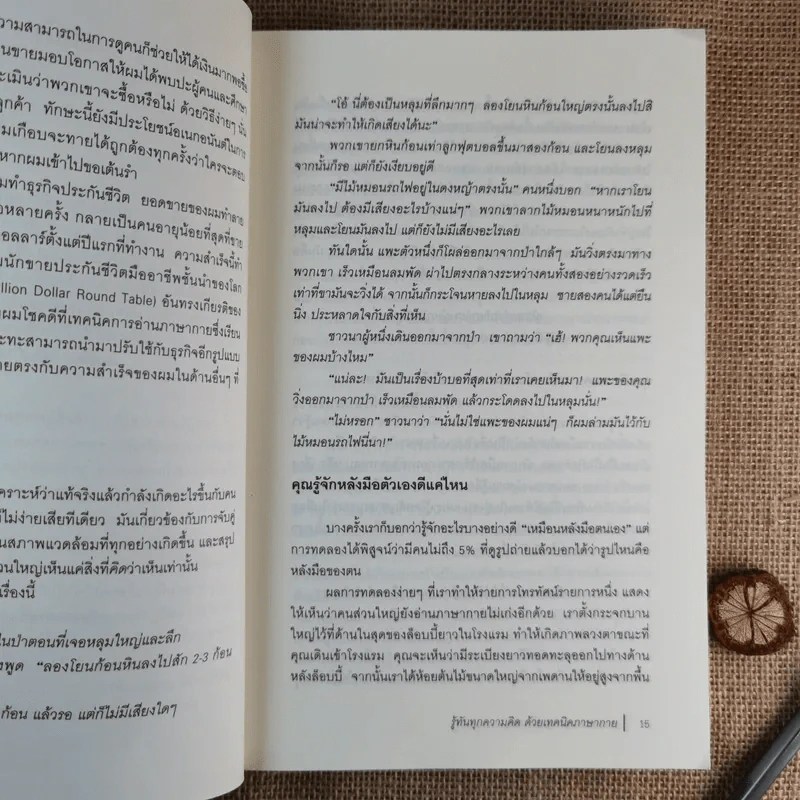 ความสามารถในการดูคนก็ช่วยให้ได้เงินมากพอซื้อ
นขายมอบโอกาสให้ผมได้พบปะผู้คนและศึกษา
ะเมินว่าพวกเขาจะซื้อหรือไม่ ด้วยวิธีง่ายๆ นั่น
ลูกค้า ทักษะนี้ยังมีประโยชน์อเนกอนันต์ในการ
มเกือบจะทายได้ถูกต้องทุกครั้งว่าใครจะตอบ
หากผมเข้าไปขอเต้นรำ
มทำธุรกิจประกันชีวิต ยอดขายของผมทำลาย
อหลายครั้ง กลายเป็นคนอายุน้อยที่สุดที่ขาย
อลลาร์ตั้งแต่ปีแรกที่ทำงาน ความสำเร็จนี้ทำ
นักขายประกันชีวิตมืออาชีพชั้นนำของโลก
illion Dollar Round Table) อันทรงเกียรติของ
ผมโชคดีที่เทคนิคการอ่านภาษากายซึ่งเรียน
ะทะสามารถนำมาปรับใช้กับธุรกิจอีกรูปแบบ
ายตรงกับความสำเร็จของผมในด้านอื่นๆ ที่
คราะห์ว่าแท้จริงแล้วกำลังเกิดอะไรขึ้นกับคน
ไม่ง่ายเสียทีเดียว มันเกี่ยวข้องกับการจับคู่
นสภาพแวดล้อมที่ทุกอย่างเกิดขึ้น และสรุป
วนใหญ่เห็นแค่สิ่งที่คิดว่าเห็นเท่านั้น
เรื่องนี้
นป่าตอนที่เจอหลุมใหญ่และลึก
งพูด “ลองโยนก้อนหินลงไปสัก 2-3 ก้อน
ก้อน แล้วรอ แต่ก็ไม่มีเสียงใดๆ
“โอ้ นี่ต้องเป็นหลุมที่ลึกมากๆ ลองโยนหินก้อนใหญ่ตรงนั้นลงไปสิ
มันน่าจะทำให้เกิดเสียงได้นะ”
พวกเขายกหินก้อนเท่าลูกฟุตบอลขึ้นมาสองก้อน และโยนลงหลุม
จากนั้นก็รอ แต่ก็ยังเงียบอยู่ดี
“มีไม้หมอนรถไฟอยู่ในดงหญ้าตรงนั้น” คนหนึ่งบอก “หากเราโยน
มันลงไป ต้องมีเสียงอะไรบ้างแน่ๆ” พวกเขาลากไม้หมอนหนาหนักไปที่
หลุมและโยนมันลงไป แต่ก็ยังไม่มีเสียงอะไรเลย
ทันใดนั้น แพะตัวหนึ่งก็โผล่ออกมาจากป่าใกล้ๆ มันวิ่งตรงมาทาง
พวกเขา เร็วเหมือนลมพัด ผ่าไปตรงกลางระหว่างคนทั้งสองอย่างรวดเร็ว
เท่าที่ขามันจะวิ่งได้ จากนั้นก็กระโจนหายลงไปในหลุม ชายสองคนได้แต่ยืน
นิ่ง ประหลาดใจกับสิ่งที่เห็น
ชาวนาผู้หนึ่งเดินออกมาจากป่า เขาถามว่า “เฮ้! พวกคุณเห็นแพะ
ของผมบ้างไหม”
“แน่ละ! มันเป็นเรื่องบ้าบอที่สุดเท่าที่เราเคยเห็นมา! แพะของคุณ
วิ่งออกมาจากป่า เร็วเหมือนลมพัด แล้วกระโดดลงไปในหลุมนั่น!”
“ไม่หรอก” ชาวนาว่า “นั่นไม่ใช่แพะของผมแน่ๆ ก็ผมล่ามมันไว้กับ
ไม้หมอนรถไฟนี่นา!”
คุณรู้จักหลังมือตัวเองดีแค่ไหน
บางครั้งเราก็บอกว่ารู้จักอะไรบางอย่างดี “เหมือนหลังมือตนเอง” แต่
การทดลองได้พิสูจน์ว่ามีคนไม่ถึง 5% ที่ดูรูปถ่ายแล้วบอกได้ว่ารูปไหนคือ
หลังมือของตน
ผลการทดลองง่ายๆ ที่เราทำให้รายการโทรทัศน์รายการหนึ่ง แสดง
ให้เห็นว่าคนส่วนใหญ่ยังอ่านภาษากายไม่เก่งอีกด้วย เราตั้งกระจกบาน
ใหญ่ไว้ที่ด้านในสุดของล็อบบี้ยาวในโรงแรม ทำให้เกิดภาพลวงตาขณะที่
คุณเดินเข้าโรงแรม คุณจะเห็นว่ามีระเบียงยาวทอดทะลุออกไปทางด้าน
หลังล็อบบี้ จากนั้นเราได้ห้อยต้นไม้ขนาดใหญ่จากเพดานให้อยู่สูงจากพื้น
รู้ทันทุกความคิด ด้วยเทคนิคภาษากาย | 15